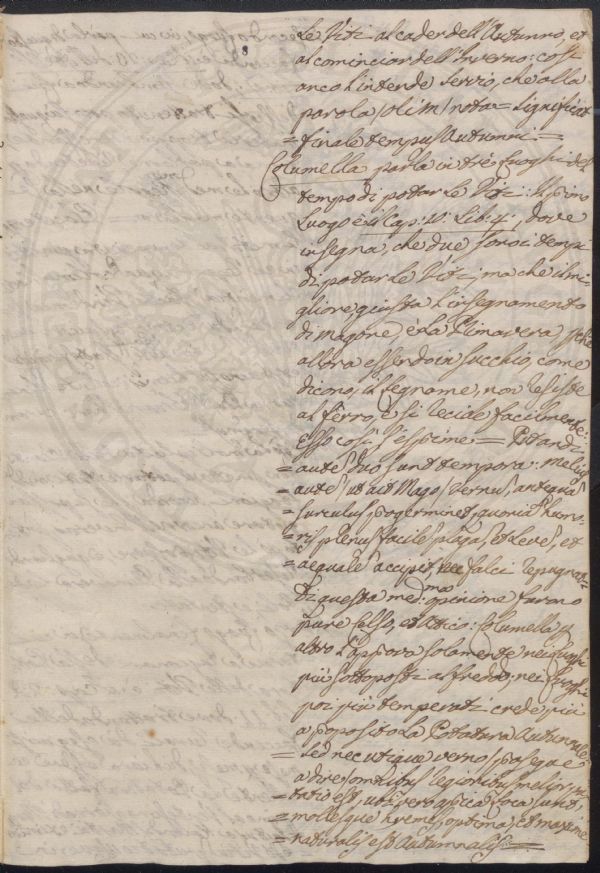 le Viti al cader dell'Autunno, et
al cominciar dell'Inverno: così
anco l'intende Servio, che alla
parola /olim/ nota = significat
= finale tempus Autumni. =
Columella parla in trè luoghi del
tempo di potar le Viti: Il primo
luogo è il Cap: 10: Lib: 4:, dove
insegna, che due sono i tempi
di potar le Viti, ma che il mi-
gliore giusta l'insegnamento
di Magone è la Primavera,
allora essendo in succhio, come
dicono, il legname, non resiste
al ferro, e si recide facilmente:
Esso così s'esprime = Putandi
= autem duo sunt tempora: melius
= autem /ut ait Mago/ vernum, antequam
= surculus progerminet, quoniam humo-
= ris plenus facilem plagam, et levem, et
= aequalem accipit, nec falci repugnat =
Di questa med:ma opinione furono
pure Celso, ed Attico: Columella p
altro l'approva solamente nei luoghi
più sottoposti al freddo; nei luoghi
poi più temperati crede più
a proposito la Potatura Autunnale
= sed nec utique verno /prosegue
a dire/ omnibus regionibus melior pu-
= tatio est, ubi vero aprica loca sunt,
= mollesque hyemes, optima, et maxime
= naturalis est Autumnalis: =